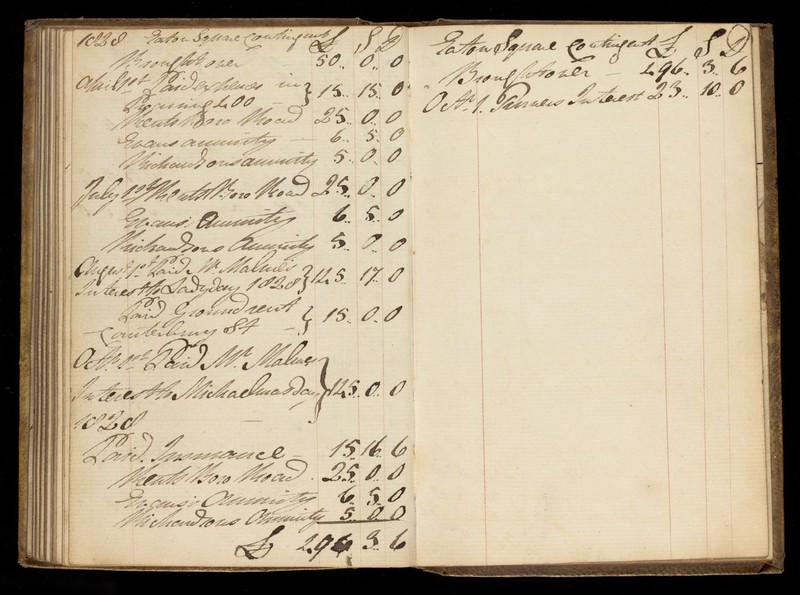 1828 Eaton Square Contingent £ S D
Brought over 50.. 0.. 0
April 1st Paid Expenses in } 15.. 15.. 0
25.. 0.. 0
Evans annuity 6.. 5.. 0
Richardsons annuity 5.. 0.. 0
July 1st Rents Boro Road 25.. 0.. 0
Evans's Annuity 6.. 5.. 0
Richardsons Annuity 5.. 0.. 0
August 1st Paid Mr. Malins } 125 17.. 0
Interest to Ladyday 1828
Paid Ground rent } 15.. 0.. 0
Canterbury St
Octr. 1st Paid Mr. Malins }
Interest to Michaelmas day 125. 0. 0
1828
Paid Insurance 15 16 6
Rents Boro Road 25. 0. 0
Evans's Annuity 6. 5. 0
Richardsons Annuity 5. 0. 0
£ 296 3.. 6
Eaton Square Contingent £ S D
Brought over 296.. 3.. 6
Octr. 1. Interest 23.. 10.. 0